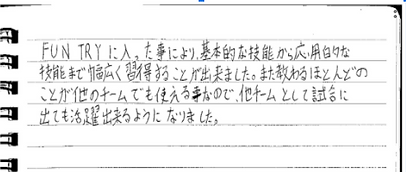 FUN TRYに入った事により、基本的な技能から応用的な
技能まで幅広く習得することが出来ました。また教わるほとんどの
ことが他のチームでも使える事なので、他チームとして試合に
出ても活躍出来るように なりました。